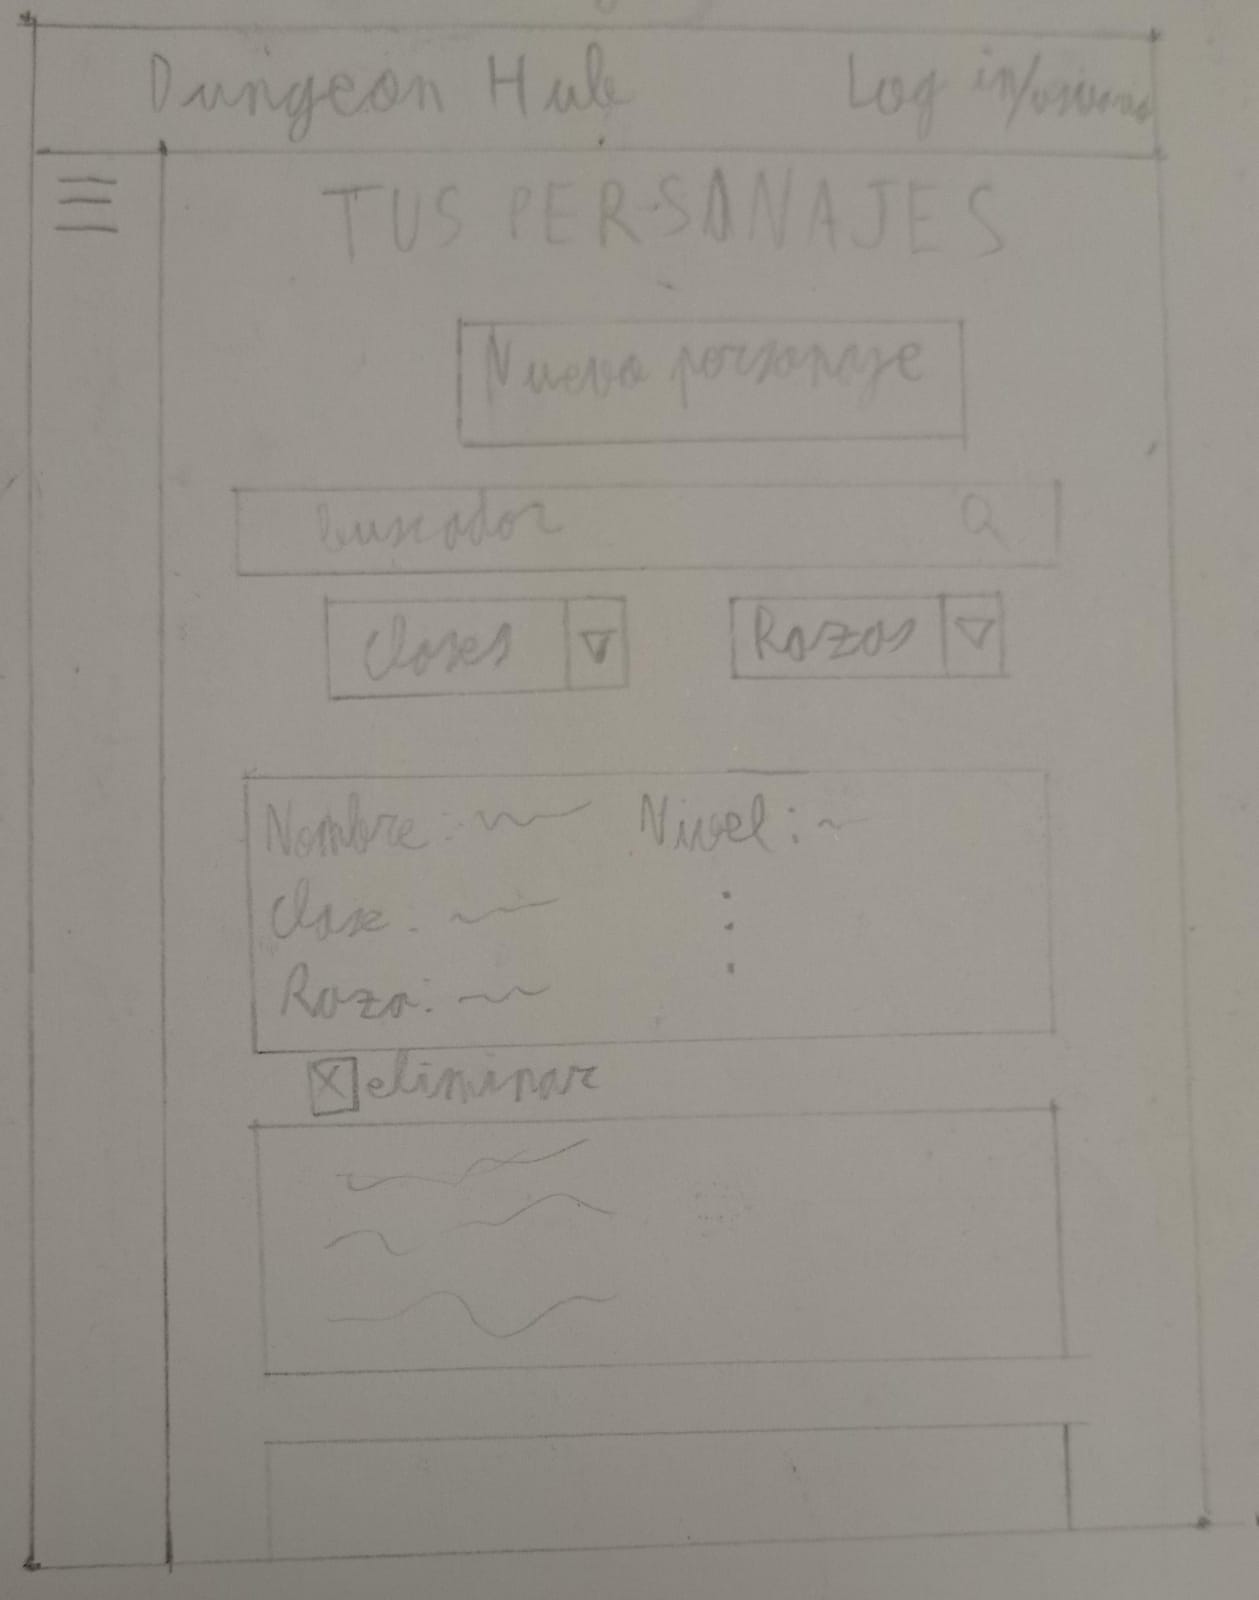 Dungeon Hub Log in/usuario
TUS PERSONAJES
Nuevo personaje
buscador
Clases
Razas
Nombre: Nivel:
Clase:
Raza:
X eliminar